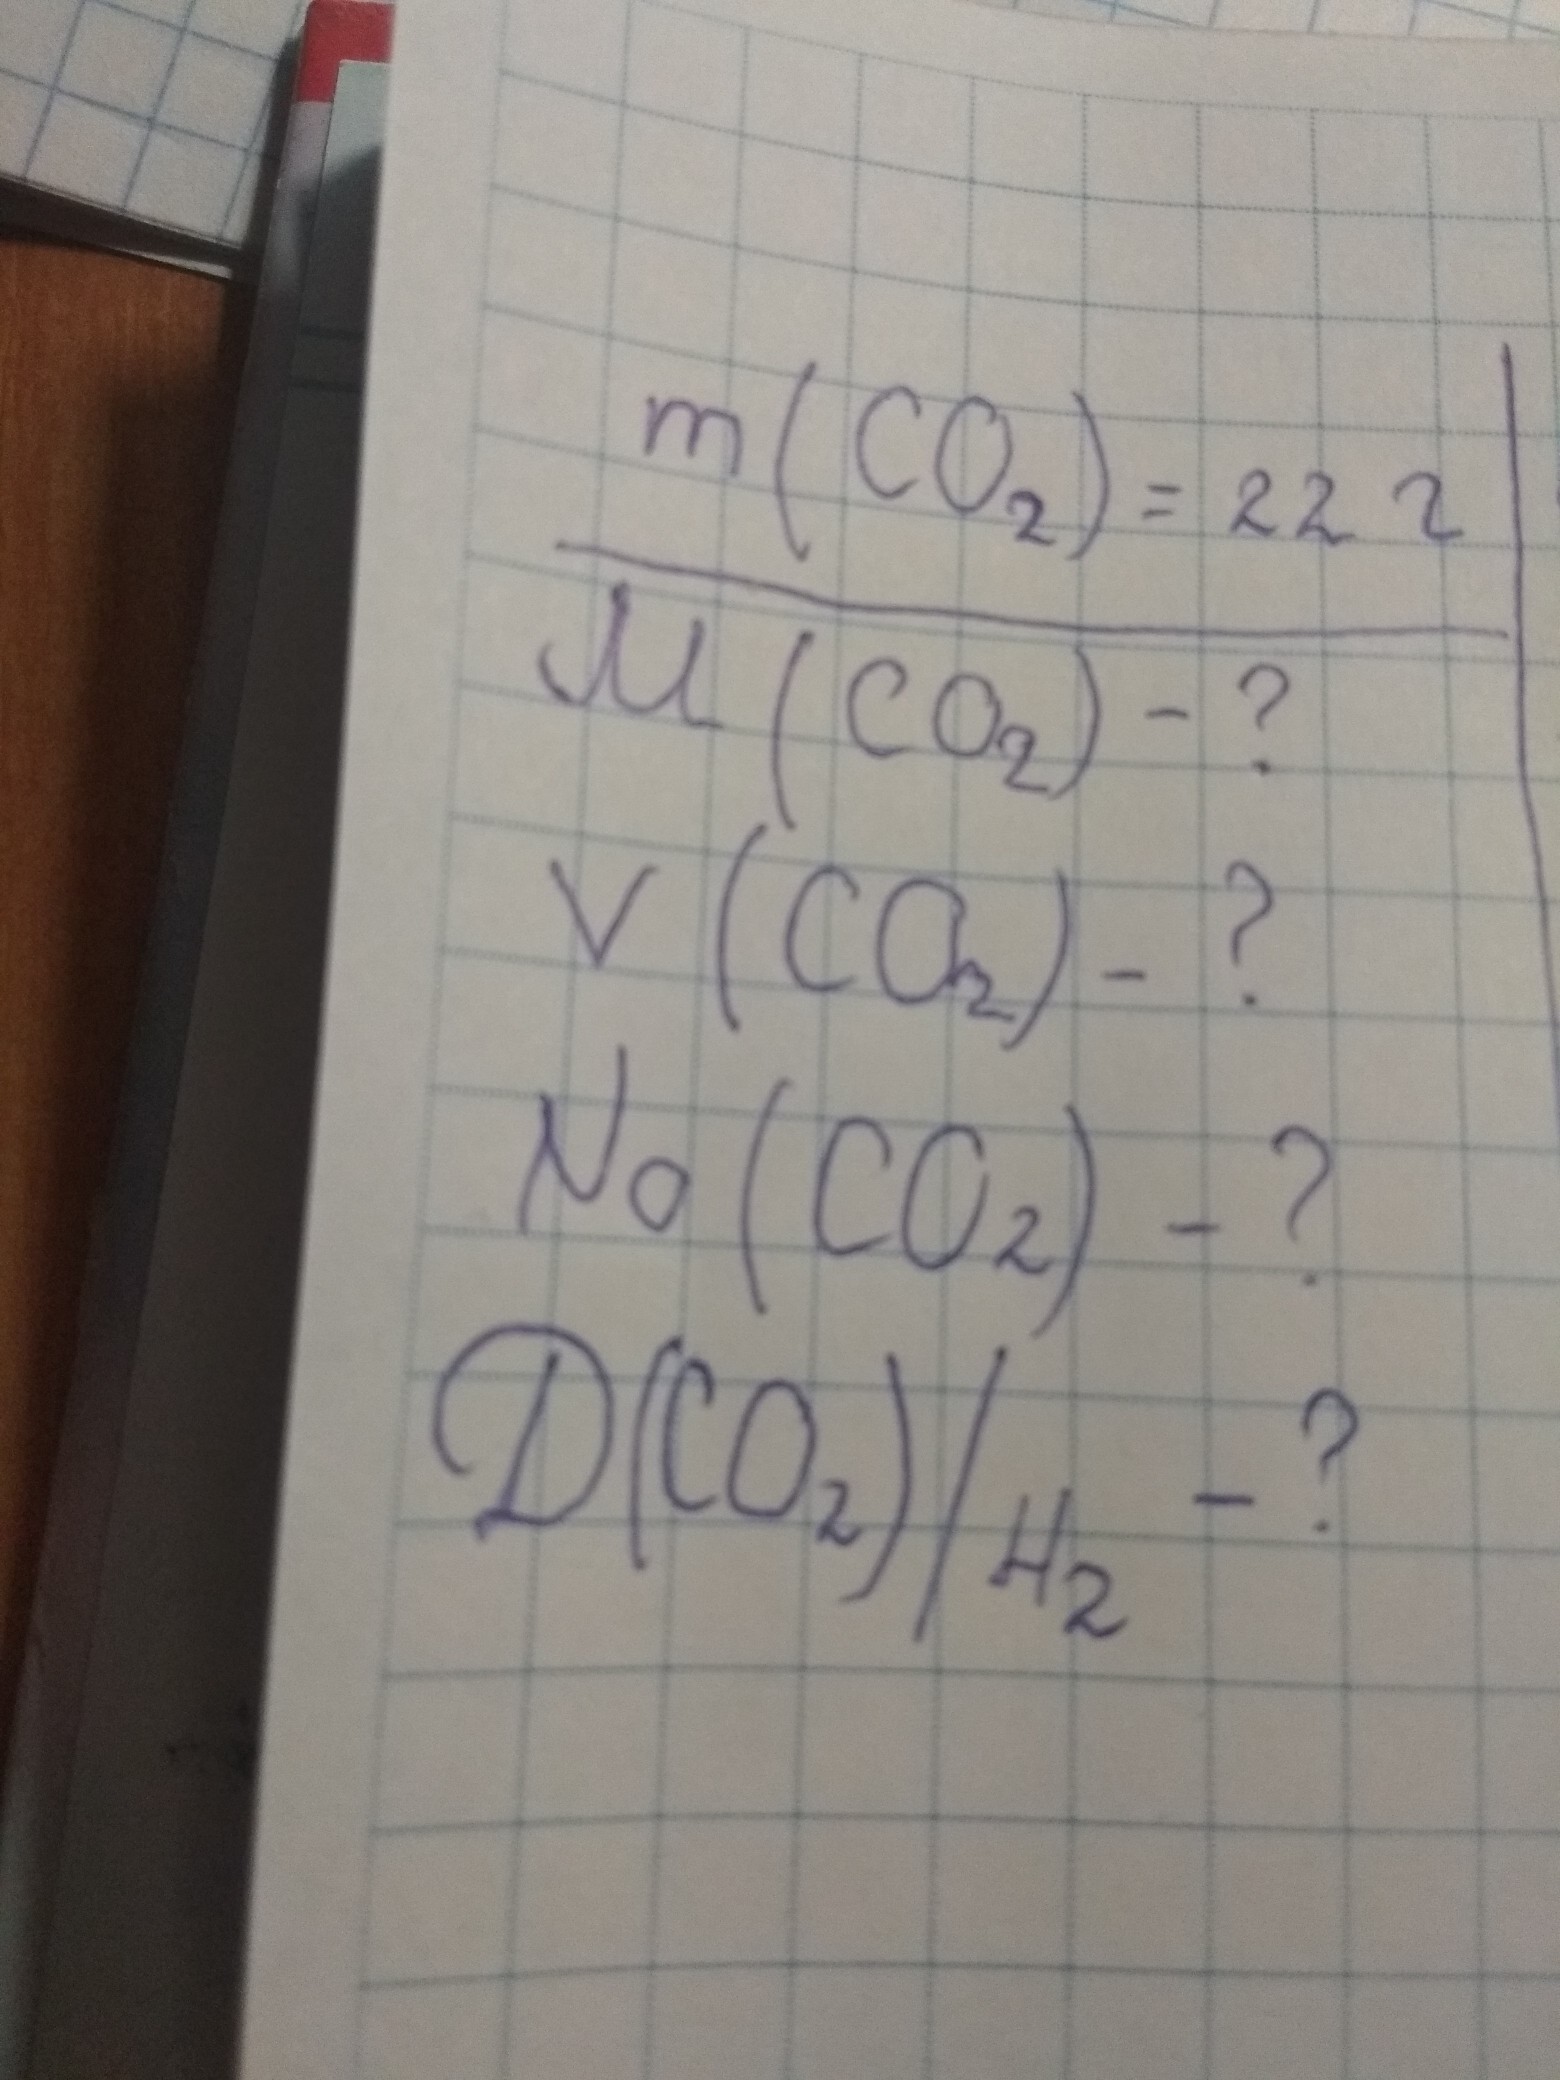 m(CO₂) = 22 г
M(CO₂) - ?
V(CO₂) - ?
No(CO₂) - ?
D(CO₂)/H₂ - ?